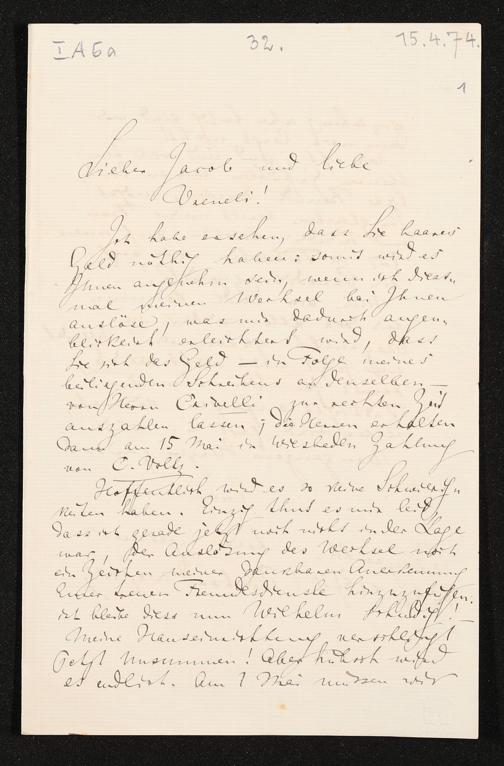 I A 6a 32. 15.4.74.
1
Lieber Jacob und liebe
Vreneli!
Ich habe ersehen, dass Sie baares
Geld nöthig haben: somit wird es
Ihnen angenehm sein, wenn ich dies-
mal meinen Wechsel bei Ihnen
auslöse, was mir dadurch augen-
blicklich erleichtert wird, dass
Sie sich das Geld – in Folge meines
beiliegenden Schreibens an denselben –
von Herrn Crivelli zur rechten Zeit
auszahlen lassen; die Herren erhalten
dann am 15 Mai in Wiesbaden Zahlung
von C. Voltz.
Hoffentlich wird es so keine Schwierig-
keiten haben. Einzig thut es mir leid,
dass ich gerade jetzt noch nicht in der Lage
war, der Auslösung des Wechsel noch
ein Zeichen meiner dankbaren Anerkennung
Eurer treuen Freundesdienste hinzuzufügen.
ich bleibe diess nun Wilhelm schuldig!
Meine Hauseinrichtung verschlingt
jetzt Unsummen! Aber hübsch wird
es endlich. Am 1 Mai müssen wir